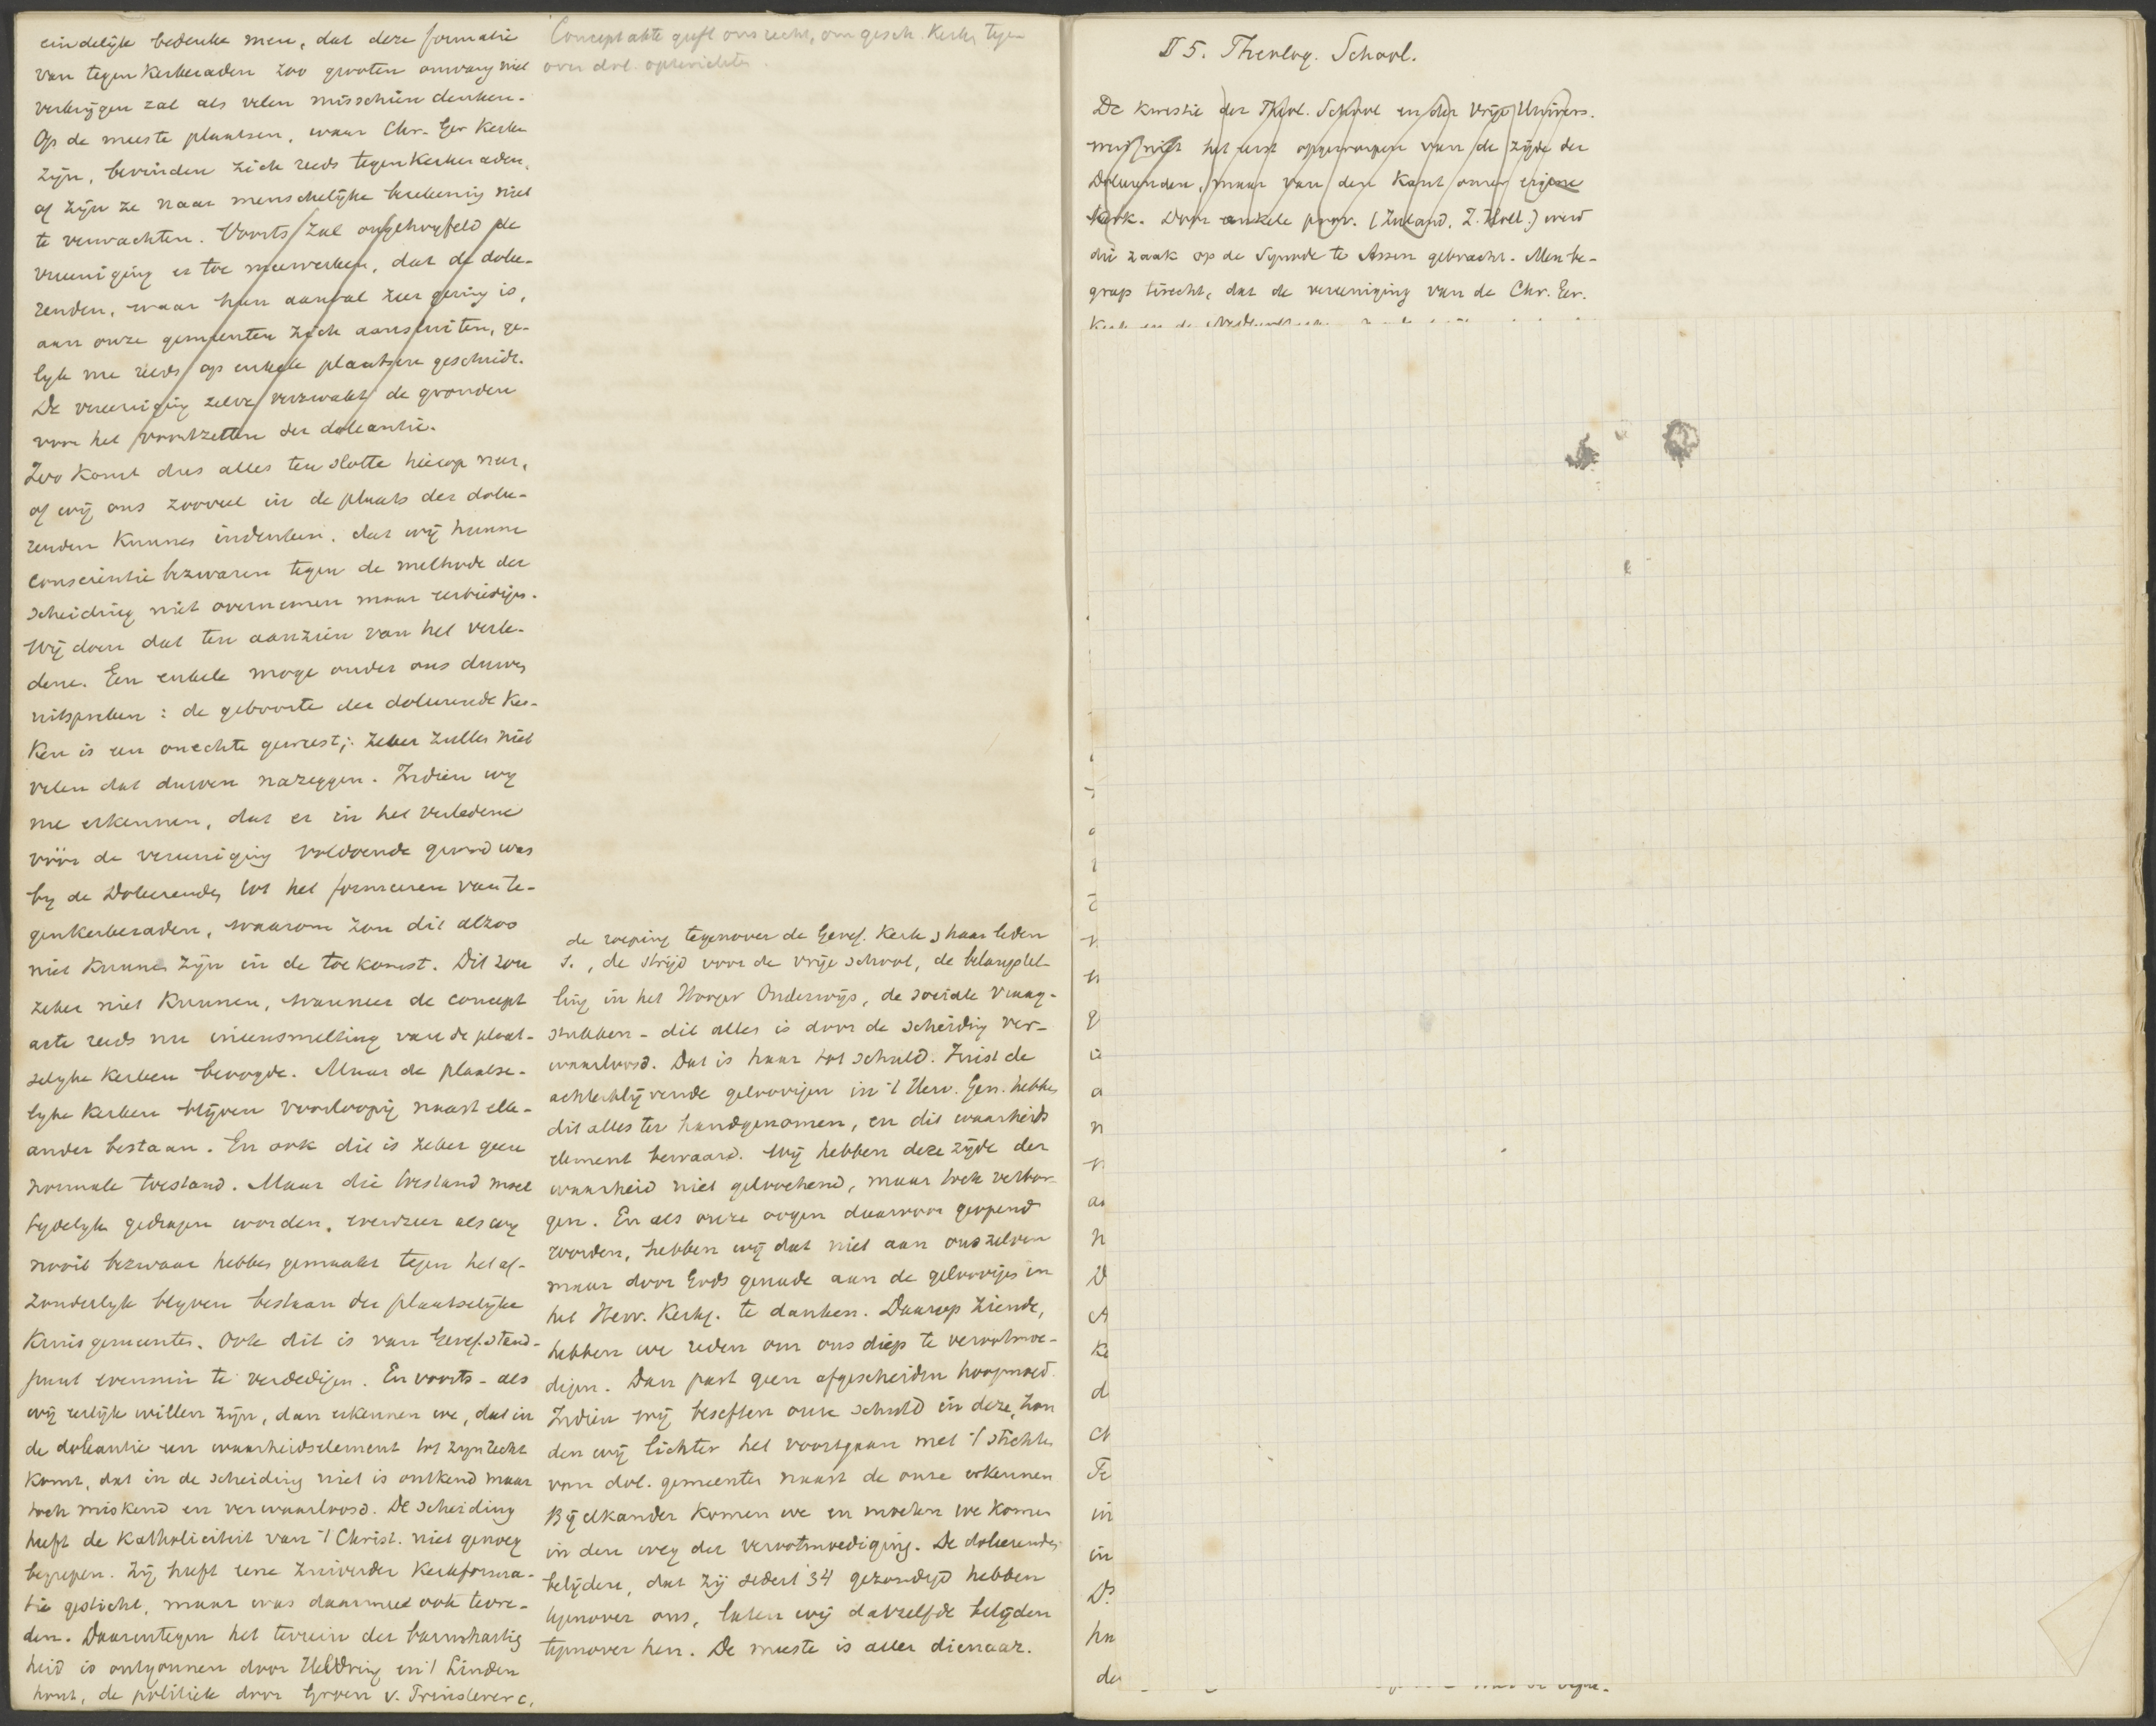 eindelijk bedenke men, dat deze formatie
van tegenkerkeraden zoo grooten omvang niet
verkrijgen zal als velen misschien denken.
Op de meeste plaatsen, waar Chr. Ger Kerken
zijn, bevinden zich reeds tegenkerkeraden,
of zijn ze naar menschelijke berekening niet
te verwachten. Voorts zal ongetwyfeld de
vereeniging er toe meewerken, dat de dolee-
renden, waar hun aantal zeer gering is,
aan onze gemeenten zich aansluiten, ge-
lyk nu reeds op enkele plaatsen geschiedt.
De vereeniging zelve verzwakt de gronden
voor het voortzetten der doleantie.
Zoo komt dus alles ten slotte hierop neer,
of wij ons zooveel in de plaats der dolee-
renden kunnen indenken, dat wij hunne
conscientie bezwaren tegen de methode der
scheiding niet overnemen maar eerbiedigen.
Wij doen dat ten aanzien van het verle-
dene. Een enkele moge onder ons durven
uitspreken: de geboorte der doleerende Ker-
ken is een onechte geweest; zeker zullen niet
velen dat durven nazeggen. Indien wij
nu erkennen, dat er in het verledene
vóór de vereeniging voldoende grond was
by de Doleerenden tot het formeeren van te-
genkerkeraden, waarom zou dit alzoo
niet kunnen zijn in de toekomst. Dit zou
zeker niet kunnen, wanneer de concept
acte reeds nu ineensmelting van de plaat-
selyke kerken beoogde. Maar de plaatse-
lyke kerken blijven voorloopig naast elk-
ander bestaan. En ook dit is zeker geen
normale toestand. Maar die toestand moet
tydelyk gedragen worden, evenzeer als wij
nooit bezwaar hebben gemaakt tegen het af-
zonderlyk blyven bestaan der plaatselijke
Kruisgemeenten. Ook dit is van Geref. stand-
punt evenmin te verdedigen. En voorts - als
wij eerlijk willen zijn, dan erkennen we, dat in
de doleantie een waarheidselement tot zyn recht
komt, dat in de scheiding niet is ontkend maar
toch miskend en verwaarloosd. De scheiding
heeft de Katholiciteit van 't Christ. niet genoeg
begrepen. Zij heeft eene zuiverder Kerkforma-
tie gesticht, maar was daarmee ook tevre-
den. Daarentegen het terrein der barmhartig
heid is ontgonnen door Heldring en 't Linden
hout, de politiek door Groen v. Prinsterer c.
Concept akte geeft ons recht, om gesch. Kerken tegen
over dol. opterichten.
de roeping tegenover de Geref. Kerk & haar leden
s., de strijd voor de vrije school, de belangstel-
ling in het Hooger Onderwijs, de sociale vraag-
stukken - dit alles is door de scheiding ver-
waarloosd. Dat is haar tot schuld. Juist de
achterblijvende geloovigen in 't Herv. Gen. hebben
dit alles ter handgenomen, en dit waarheids
element bewaard. Wij hebben deze zijde der
waarheid niet geloochend, maar toch verbor-
gen. En als onze oogen daarvoor geopend
worden, hebben wij dat niet aan ons zelven
maar door Gods genade aan de geloovigen in
het Herv. Kerkg. te danken. Daarop ziende,
hebben we reden om ons diep te verootmoe-
digen. Dan past geen afgescheiden hoogmoed.
Indien wij beseffen onze schuld in deze, zou
den wij lichter het voortgaan met 't stichten
van dol. gemeenten naast de onze erkennen
Bij elkander komen we en moeten we komen
in den weg der verootmoediging. De doleerenden
belijden, dat zij sedert '34 gezondigd hebben
tegenover ons, laten wij datzelfde belijden
tegenover hen. De meeste is aller dienaar.
II 5. Theolog. School.
De kwestie der Theol. School en der Vrije Univers.
werd niet het eerst opgeworpen van de zijde der
Doleerenden, maar van den kant onzer eigene
Kerk. Door enkele prov. (Zeeland, Z. Holl.) werd
die zaak op de Synode te Assen gebracht. Men be-
greep terecht, dat de vereeniging van de Chr. Ger.